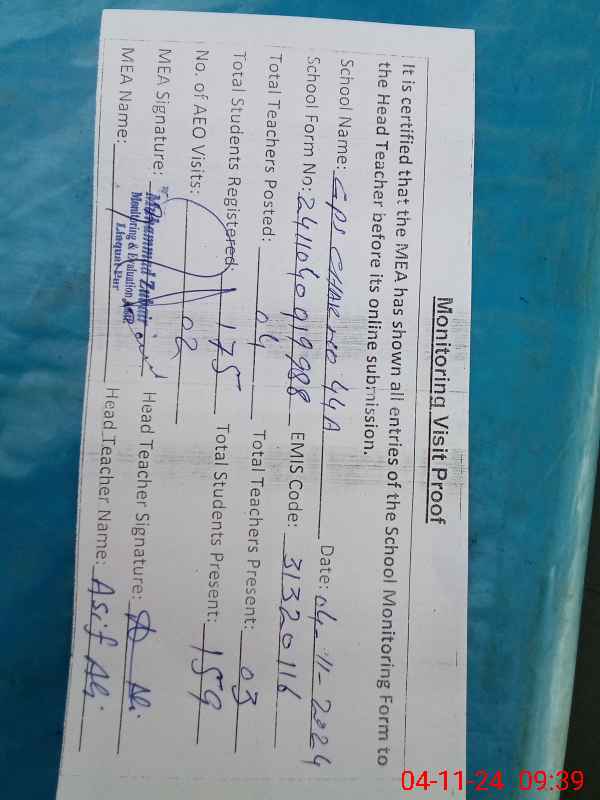 Monitoring Visit Proof
It is certified that the MEA has shown all entries of the School Monitoring Form to
the Head Teacher before its online submission.
School Name: GPS CHAK NO 44A Date: 04-11-2024
School Form No: 2411040919988 EMIS Code: 31320116
Total Teachers Posted: 04 Total Teachers Present: 03
Total Students Registered: 175 Total Students Present: 159
No. of AEO Visits: 02
MEA Signature: Head Teacher Signature: Ali
Muhammad Zubair
Monitoring & Evaluation
Liaquat Pur
MEA Name: Head Teacher Name: Asif Ali
04-11-24 09:39